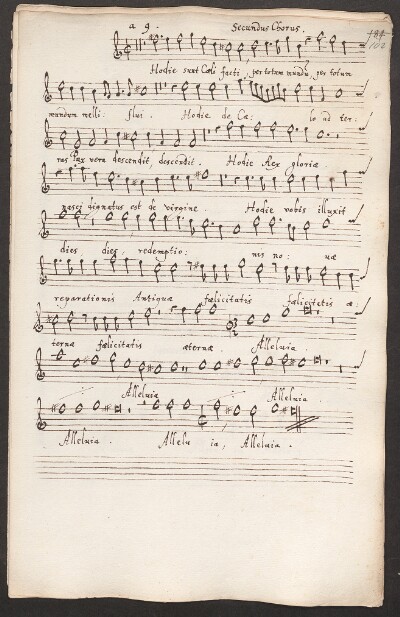 a 9. Secundus Chorus.
102
Hodie sunt Cœli facti, per totum mundũ, per totum
mundum melli: flui. Hodie de Cæ: lo ad ter:
ras Pax vera descendit, descẽdit. Hodie Rex gloriæ
nasci dignatus est de virgine. Hodie vobis illuxit
dies dies, redemptio: nis no: uæ
reparationis Antiquæ fœlicitatis fœlicitatis æ:
ternæ fœlicitatis æternæ. Alleluia.
Alleluia Alleluia.
Alleluia. Allelu ia, Alleluia.